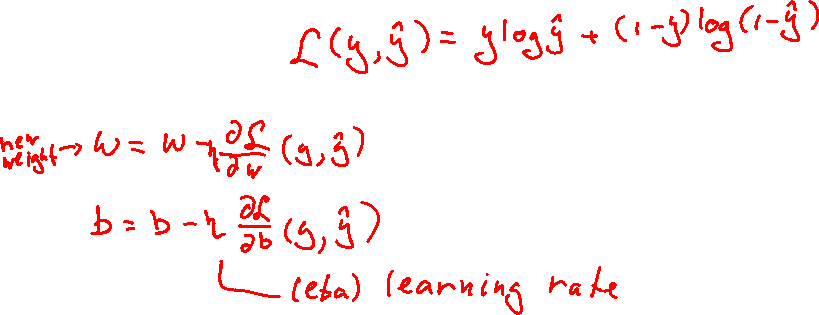 ℒ(y, ŷ) = y log ŷ + (1-y) log(1-ŷ)
new weight → w = w - η ∂ℒ/∂w (y, ŷ)
b = b - η ∂ℒ/∂b (y, ŷ)
(eta) learning rate